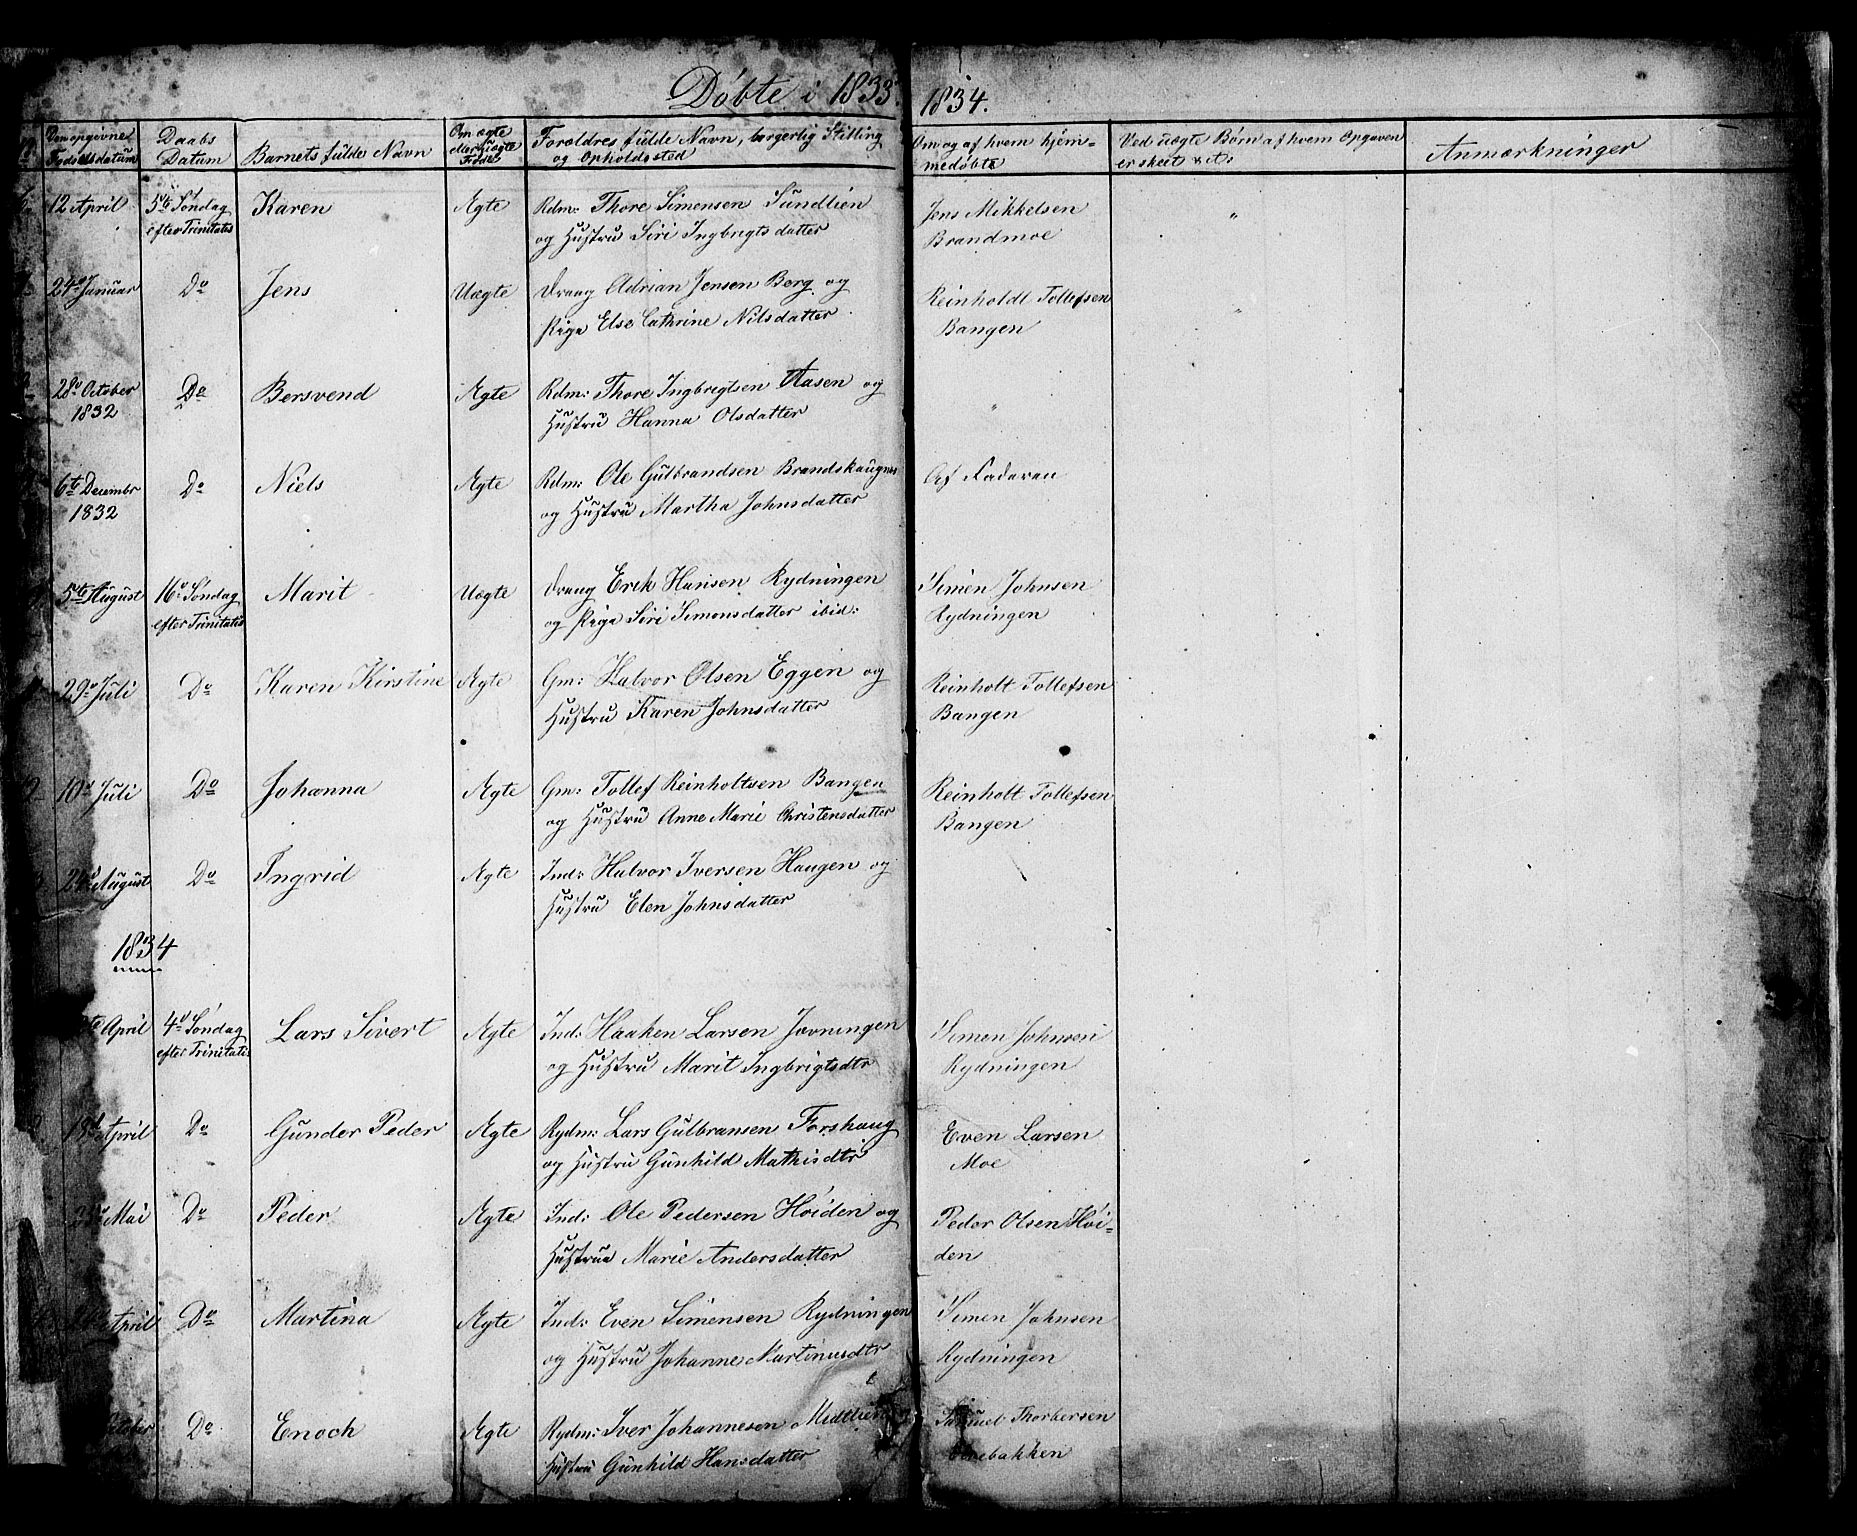 Døbte i 1833. 1834.
Den opgivne Fødselsdatum
Daabs Datum
Barnets fulde Navn
Om ægte eller uægte Fødte
Foreldres fulde Navn, borgerlig Stilling og Opholdssted
Om og af hvem hjemmedøbte
Ved uægte Børn af hvem Opgaven er skeet &ct:
Anmærkninger
12 April 5te Søndag Karen Ægte Rdm: Thore Simensen Sundlien Jens Mikkelsen "
efter Trinitatis og Hustru Siri Ingbrigtsdatter Brandmoe
24de Januar Do Jens Uægte Dreng Adrian Jensen Berg og Reinholdt Tollefsen "
Pige Else Cathrine Nilsdatter. Bangen
28de October Do Bersvend Ægte Rdm: Thore Ingbrigtsen Aasen og "
1832 Hustru Hanna Olsdatter
6te Decembr Do Niels Ægte Rdm: Ole Gulbrandsen Brandskaugnes Af Faderen
1832 og Hustru Martha Johnsdatter
5te August 16de Søndag Marit Uægte Dreng Erik Hansen Rydningen Simen Johnsen
efter Trinitatis og Pige Siri Simonsdatter ibid: Rydningen
29de Juli Do Karen Kirstine Ægte Gm: Halvor Olsen Eggen og Reinholt Tollefsen
Hustru Karen Johnsdatter Bangen
10de Juli Do Johanna Ægte Gm: Tollef Reinholtsen Bangen Reinholt Tollefsen
og Hustru Anne Marie Christensdatter Bangen
August Do Ingrid Ægte Ind: Halvor Iversen Haugen og
Hustru Elen Johnsdatter
1834
April 4de Søndag Lars Sivert Ægte Ind: Haaken Larsen Jovningen Simen Johnsen
efter Trinitatis og Hustru Marit Ingbrigtsdtr Rydningen
April Do Gunder Peder Ægte Rydm: Lars Gulbransen Forshaug Even Larsen
og Hustru Gunhild Mathisdtr Moe
Mai Do Peder Ægte Ind: Ole Pedersen Høiden og Peder Olsen Høi=
Hustrue Marie Andersdatter den
April Do Martina Ægte Ind: Even Simensen Rydningen Simen Johnsen
og Hustru Johanne Martinusdtr Rydningen
October Do Enoch Ægte Rydm: Iver Johannesen Midtlien Samuel Thorbersen
Hustru Gunhild Hansdatter